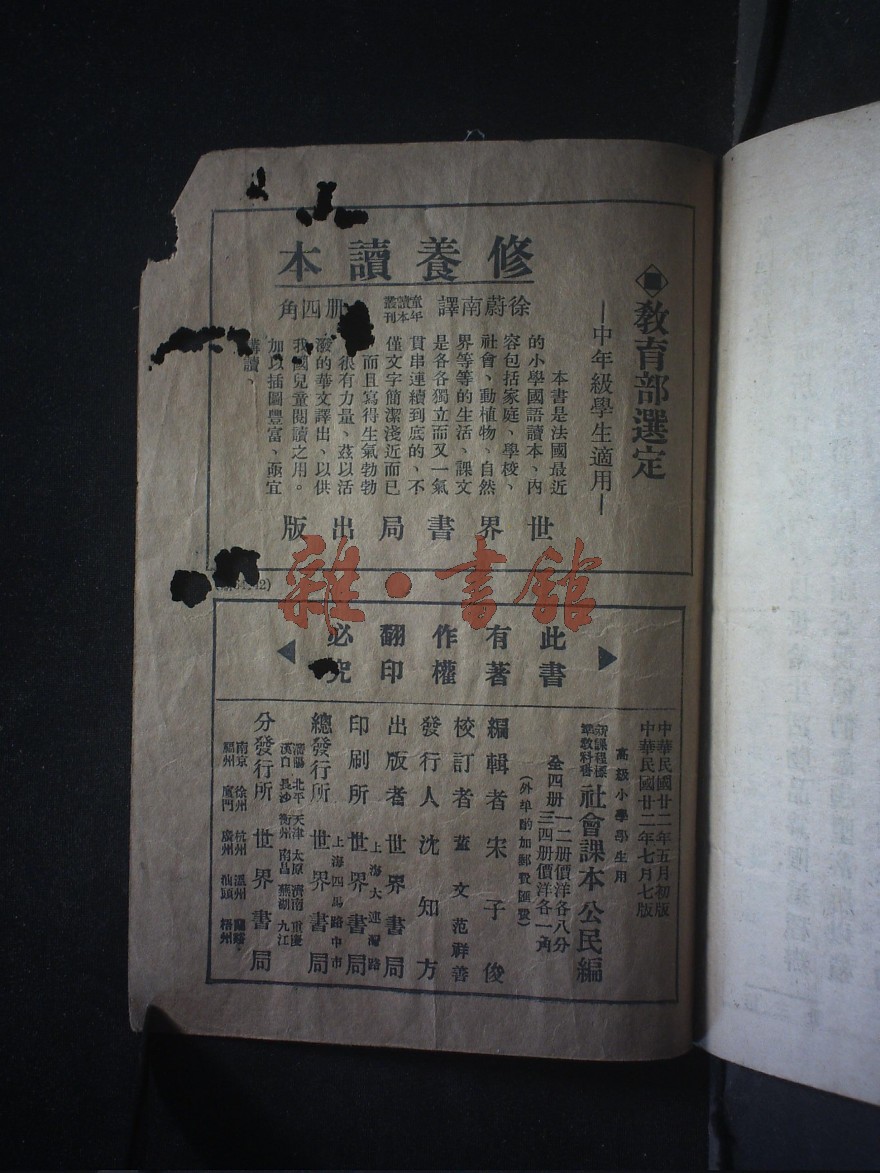 教育部選定
—中年級學生適用—
修養讀本
徐蔚南譯
童年讀本叢刊
冊四角
本書是法國最近
的小學國語讀本、內
容包括家庭、學校、
社會、動植物、自然
界等等的生活、課文
是各各獨立而又一氣
貫串連續到底的、不
僅文字簡潔淺近而已
而且寫得生氣勃勃
很有力量、茲以活
潑的華文譯出、以供
我國兒童閱讀之用。
加以插圖豐富、亟宜
購讀、
世界書局出版
雜·書館
此書
有著
作權
翻印
必究
中華民國廿二年五月初版
中華民國廿二年七月七版
高級小學學生用
新課程標準教科書
社會課本 公民編
全四册
一二册價洋各八分
三四册價洋各一角
(外埠酌加郵費匯費)
編輯者 宋子俊
校訂者 董文 范祥善
發行人 沈知方
出版者 世界書局
上海大連灣路
印刷所 世界書局
上海四馬路中市
總發行所 世界書局
瀋陽 北平 天津 太原 濟南 重慶
漢口 長沙 衡州 南昌 蕪湖 九江
分發行所 世界書局
南京 徐州 杭州 溫州 蘭谿
福州 廈門 廣州 汕頭 梧州